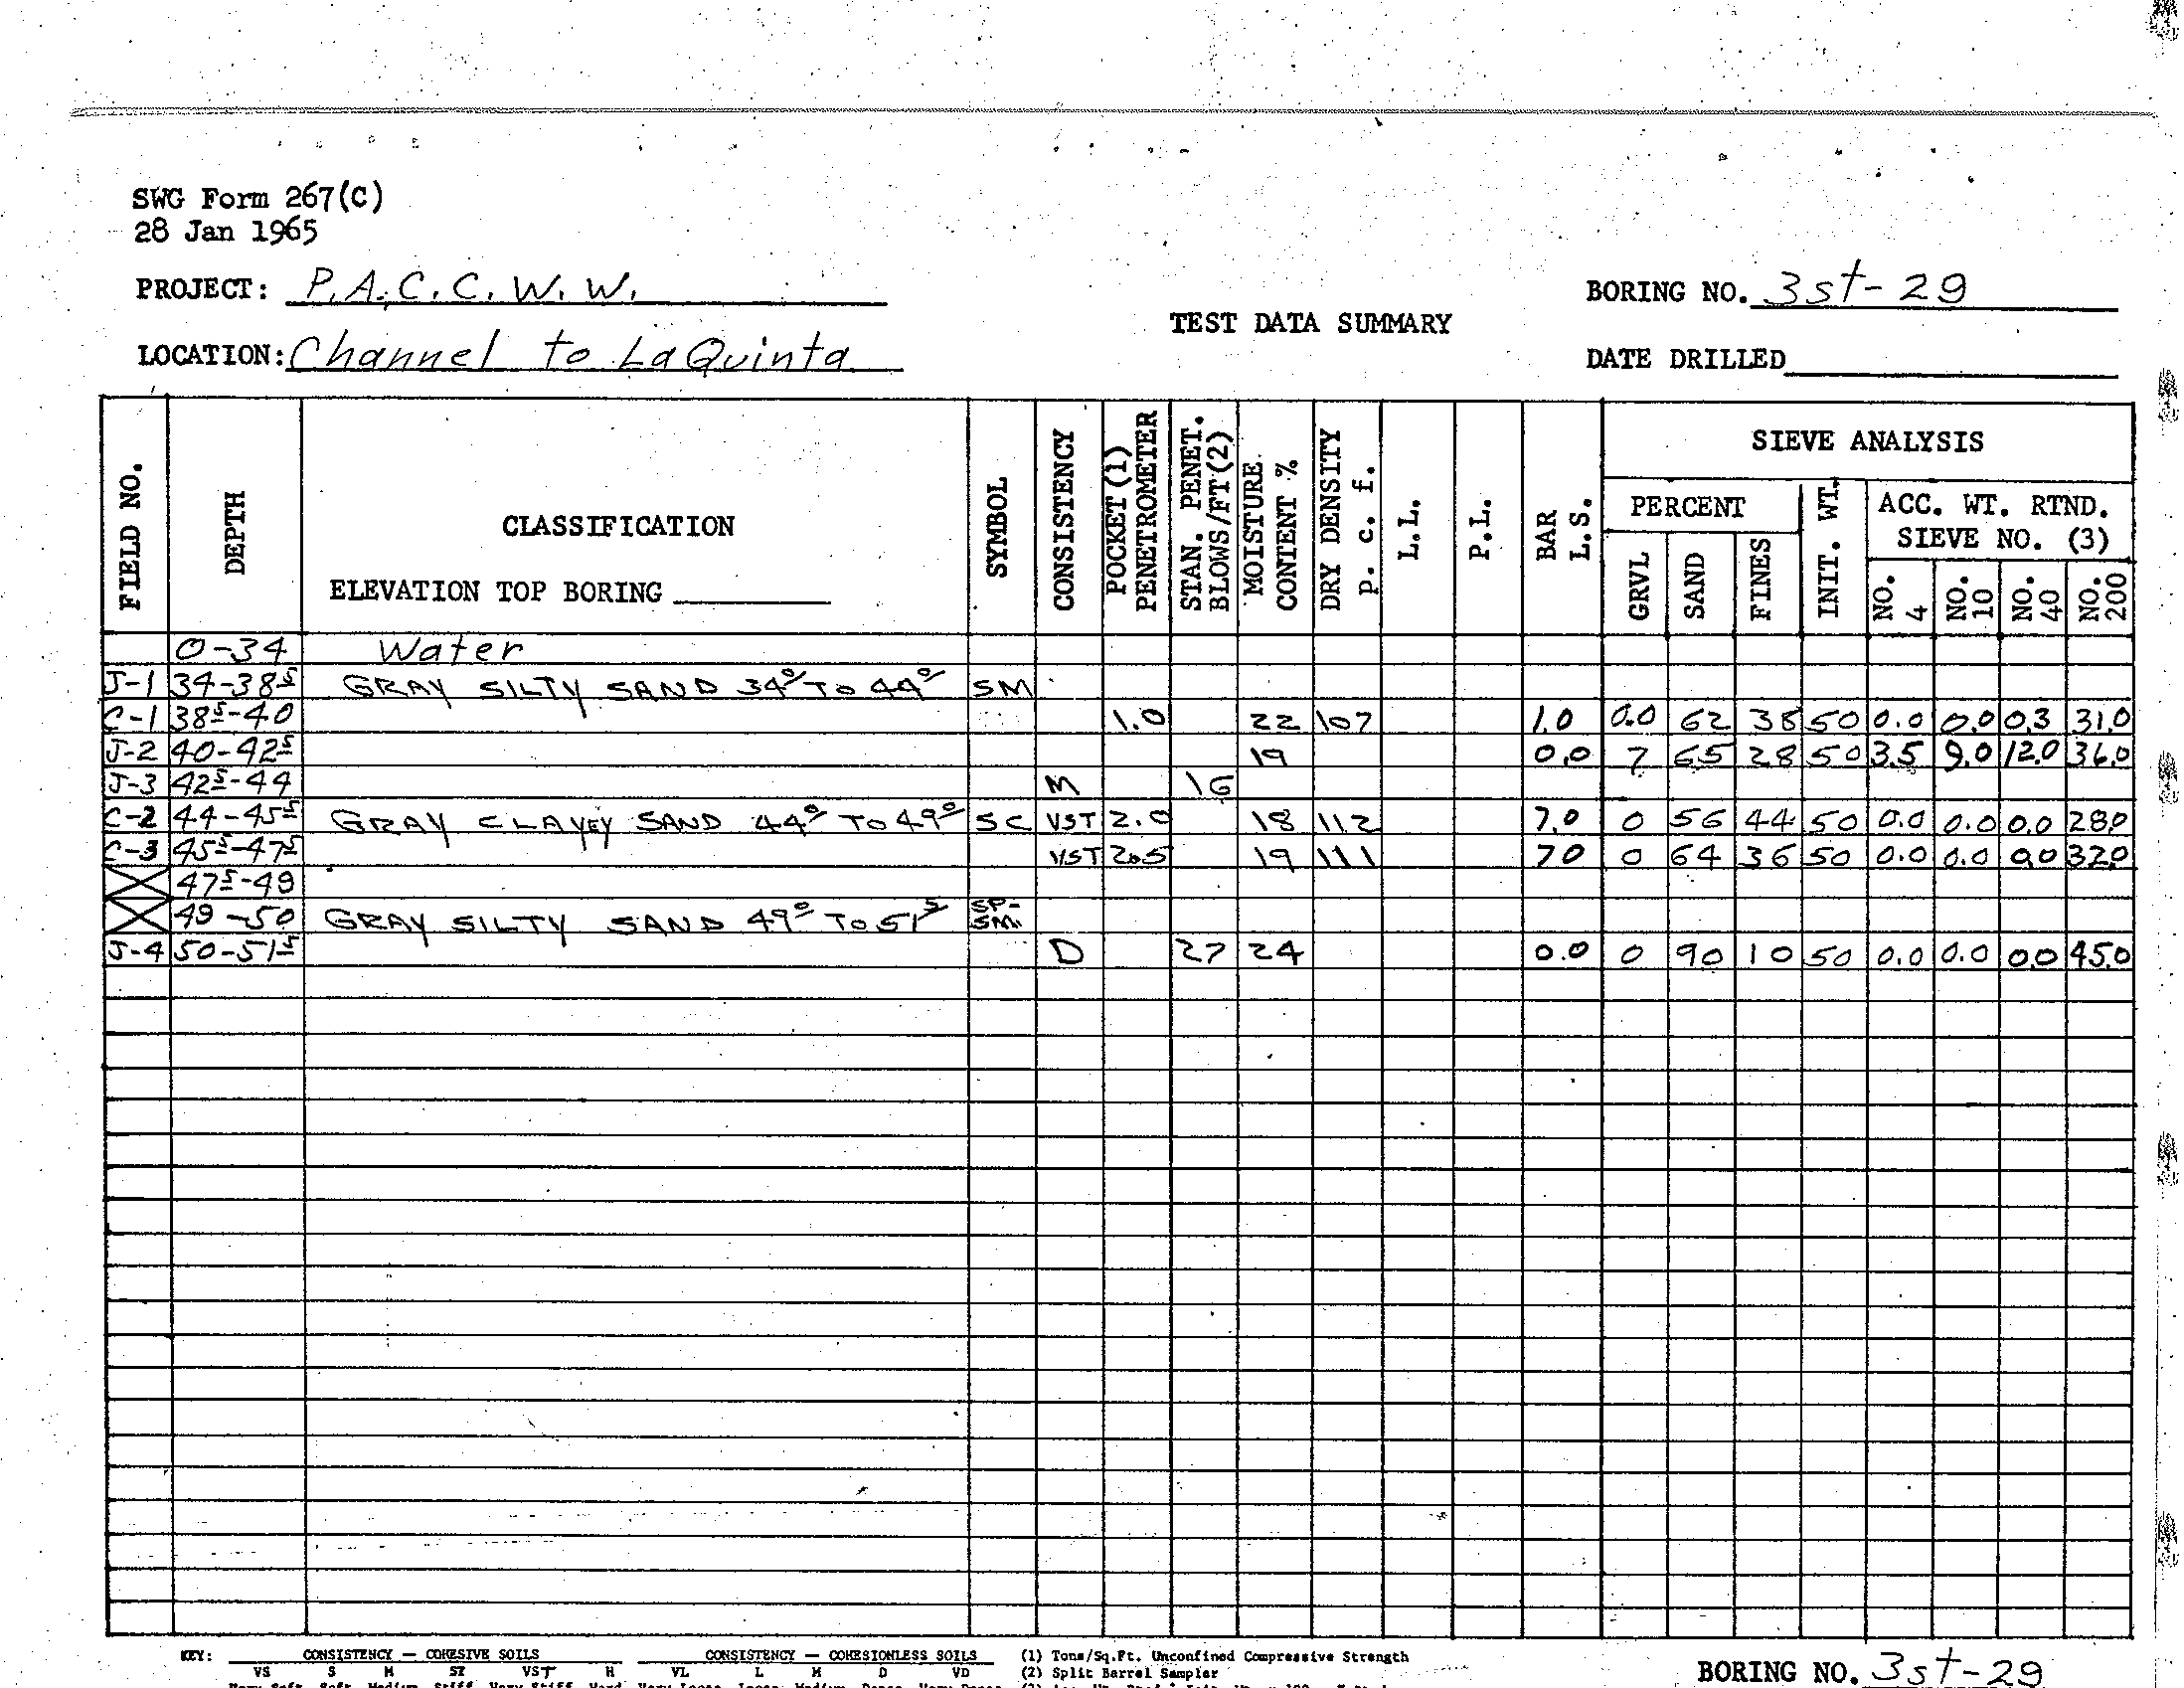 SWG Form 267(C)
28 Jan 1965
PROJECT: P.A.C.C.W.W.
BORING NO. 3st-29
TEST DATA SUMMARY
LOCATION: Channel to LaQuinta
DATE DRILLED
FIELD NO. DEPTH CLASSIFICATION SYMBOL CONSISTENCY POCKET (1) PENETROMETER STAN. PENET. BLOWS/FT(2) MOISTURE CONTENT % DRY DENSITY p. c. f. L.L. P.L. BAR L.S. SIEVE ANALYSIS
PERCENT INIT. WT. ACC. WT. RTND. SIEVE NO. (3)
ELEVATION TOP BORING
GRVL SAND FINES NO. 4 NO. 10 NO. 40 NO. 200
0-34 Water
J-1 34-38⁵ GRAY SILTY SAND 34⁰ TO 44⁰ SM
C-1 38⁵-40 1.0 22 107 1.0 0.0 62 38 50 0.0 0.0 0.3 31.0
J-2 40-42⁵ 19 0.0 7 65 28 50 3.5 9.0 12.0 36.0
J-3 42⁵-44 M 16
C-2 44-45⁵ GRAY CLAYEY SAND 44⁰ TO 49⁰ SC VST 2.0 18 112 7.0 0 56 44 50 0.0 0.0 0.0 28.0
C-3 45⁵-47⁵ VST 2.5 19 111 7.0 0 64 36 50 0.0 0.0 0.0 32.0
47⁵-49
49-50 GRAY SILTY SAND 49⁰ TO 51⁵ SP-SM
J-4 50-51⁵ D 27 24 0.0 0 90 10 50 0.0 0.0 0.0 45.0
KEY: CONSISTENCY — COHESIVE SOILS CONSISTENCY — COHESIONLESS SOILS (1) Tons/Sq.Ft. Unconfined Compressive Strength
VS S M ST VST H VL L M D VD (2) Split Barrel Sampler
BORING NO. 3st-29